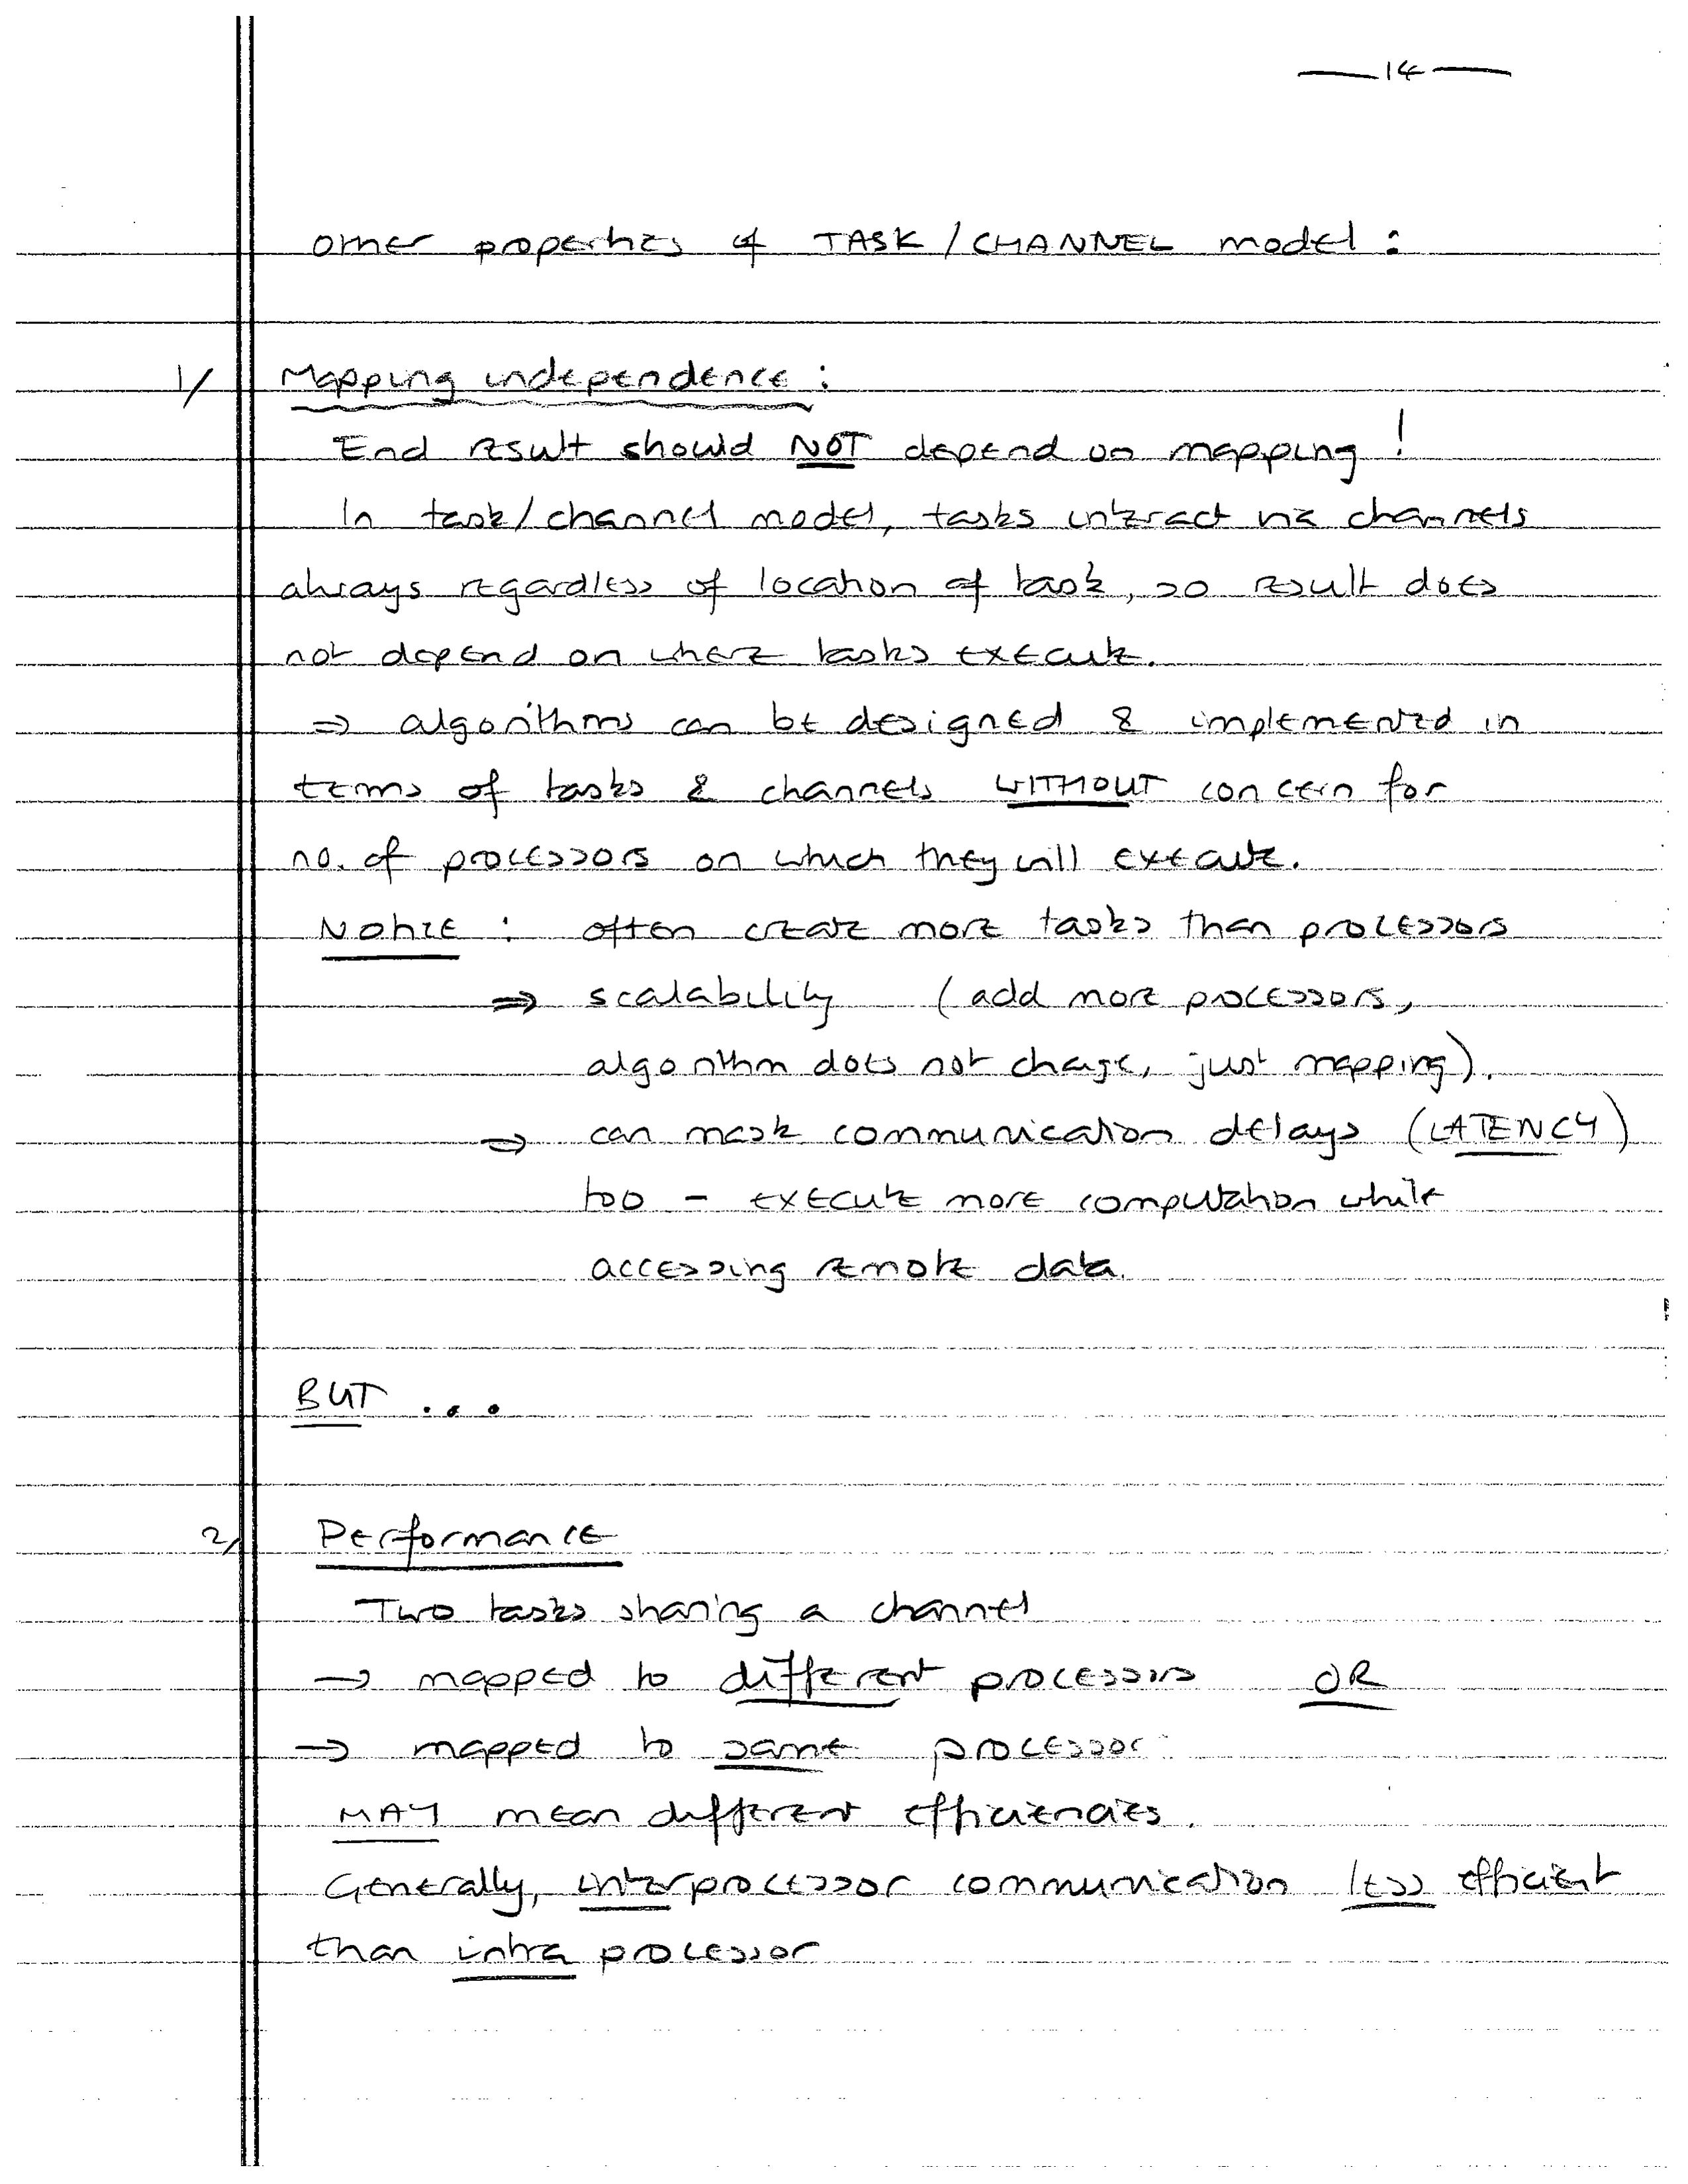 — 14 —
Other properties of TASK/CHANNEL model :
1/ Mapping independence :
End result should NOT depend on mapping !
In task/channel model, tasks interact via channels
always regardless of location of task, so result does
not depend on where tasks execute.
⇒ algorithms can be designed & implemented in
terms of tasks & channels WITHOUT concern for
no. of processors on which they will execute.
Notice : often create more tasks than processors
⇒ scalability (add more processors,
algorithm does not change, just mapping).
⇒ can mask communication delays (LATENCY)
too - execute more computation while
accessing remote data.
BUT ...
2/ Performance
Two tasks sharing a channel
→ mapped to different processors OR
→ mapped to same processor
MAY mean different efficiencies.
Generally, interprocessor communication less efficient
than intra processor